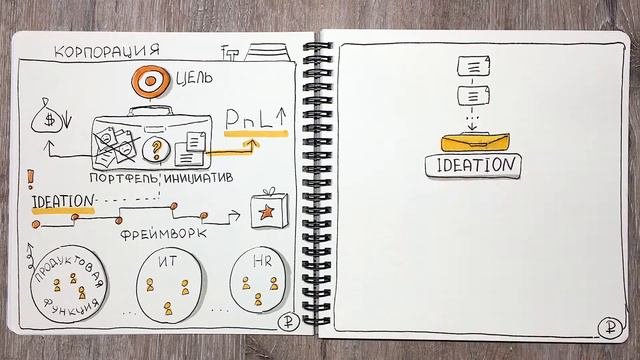 КОРПОРАЦИЯ
ЦЕЛЬ
$
PnL
?
ПОРТФЕЛЬ ИНИЦИАТИВ
!
IDEATION
ФРЕЙМВОРК
ПРОДУКТОВАЯ ФУНКЦИЯ
ИТ
HR
₽
IDEATION
₽